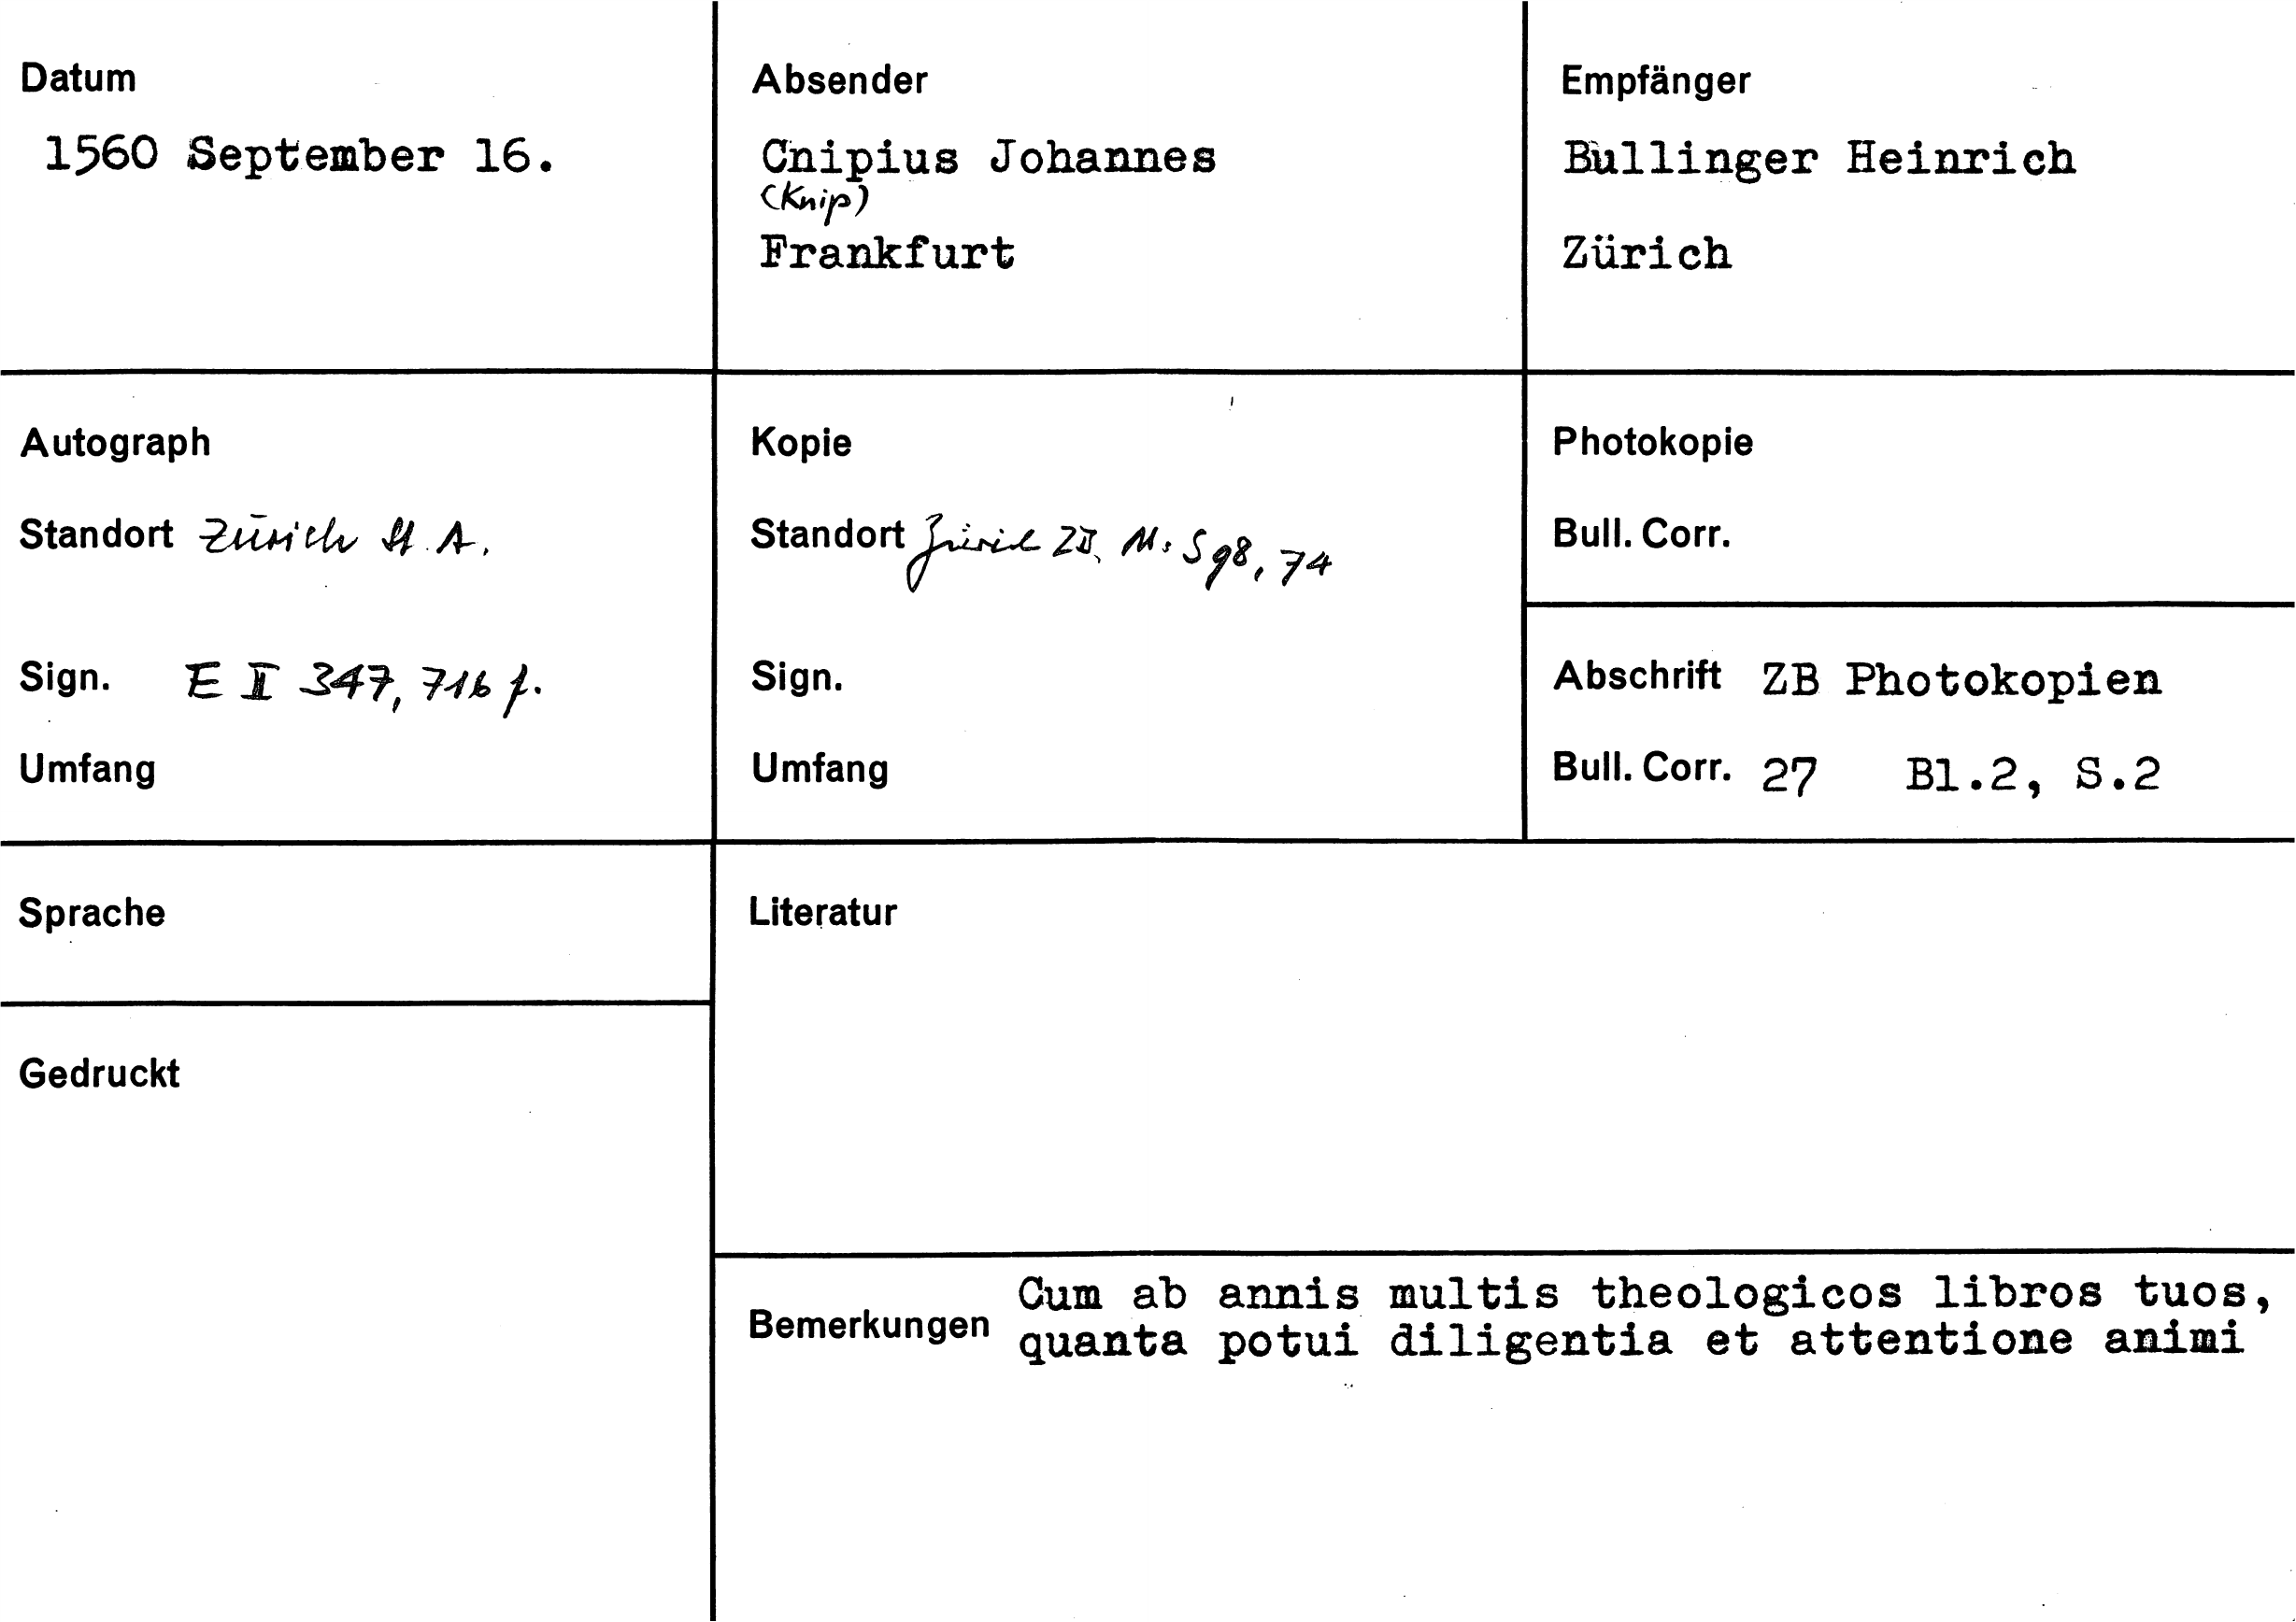 Datum
1560 September 16.
Absender
Cnipius Johannes
(Knip)
Frankfurt
Empfänger
Bullinger Heinrich
Zürich
Autograph
Standort Zürich St. A.
Sign. E II 347, 716 f.
Umfang
Kopie
Standort Zürich ZB, Ms S 98, 74
Sign.
Umfang
Photokopie
Bull. Corr.
Abschrift ZB Photokopien
Bull. Corr. 27 Bl.2, S.2
Sprache
Gedruckt
Literatur
Bemerkungen
Cum ab annis multis theologicos libros tuos,
quanta potui diligentia et attentione animi